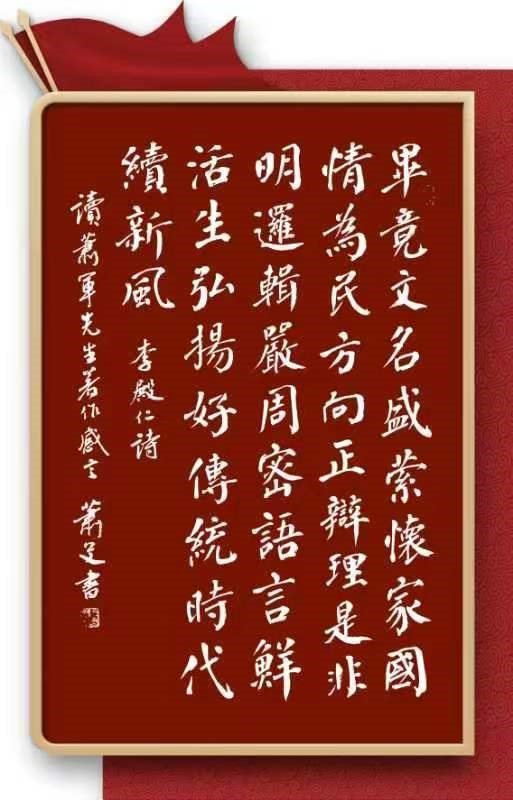 畢竟文名盛縈懷家國
情為民方向正辯理是非
明邏輯嚴周密語言鮮
活生弘揚好傳統時代
續新風 李殿仁詩
讀蕭軍先生著作感言 蕭㠯書